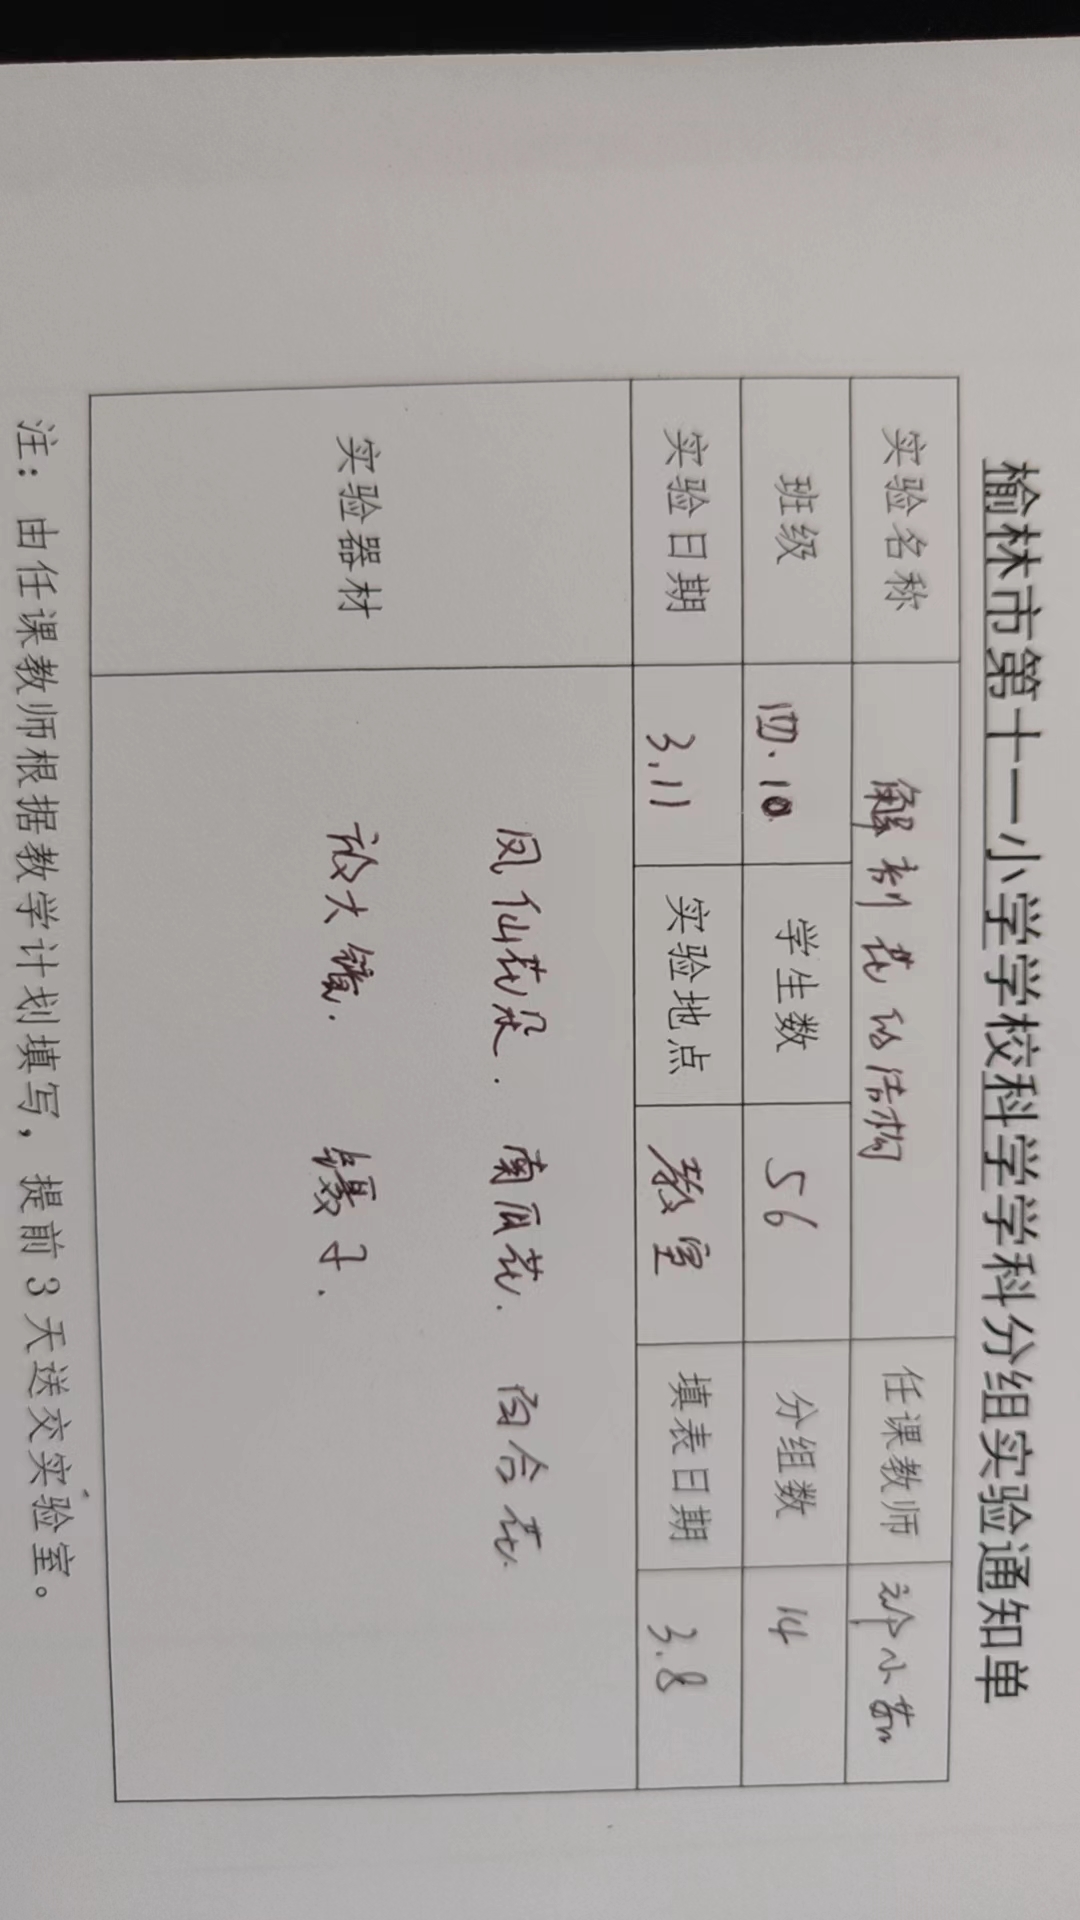 榆林市第十一小学学校科学学科分组实验通知单
实验名称 解剖花的结构 任课教师 小茹
班级 四.10 学生数 56 分组数 14
实验日期 3.11 实验地点 教室 填表日期 3.8
实验器材 凤仙花朵. 南瓜花. 百合花.
放大镜. 镊子.
注：由任课教师根据教学计划填写，提前3天送交实验室。